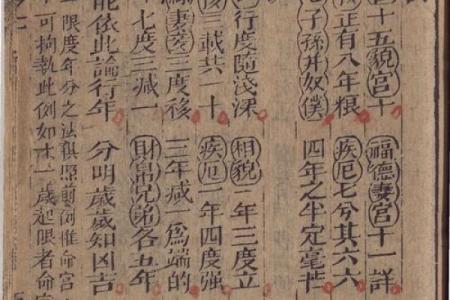 宮十五貌宮十　福德妻宮十一詳
正有八年根　疾厄七兮其六六
子孫并奴僕　四年之半定毫芒
行度隨淺深　相貌二年三度立
三載共一十　疾厄一年四度强
妻妾三度移　三年减一為端的
七度三减一　財帛兄弟各五年
能依此論行年　分明歲歲知凶吉
限度年分之法俱照前例惟命宮
可拘執此例如一歲起限者命宮